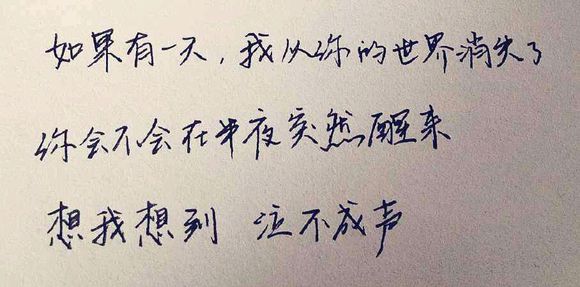 如果有一天，我从你的世界消失了
你会不会在半夜突然醒来
想我想到 泣不成声